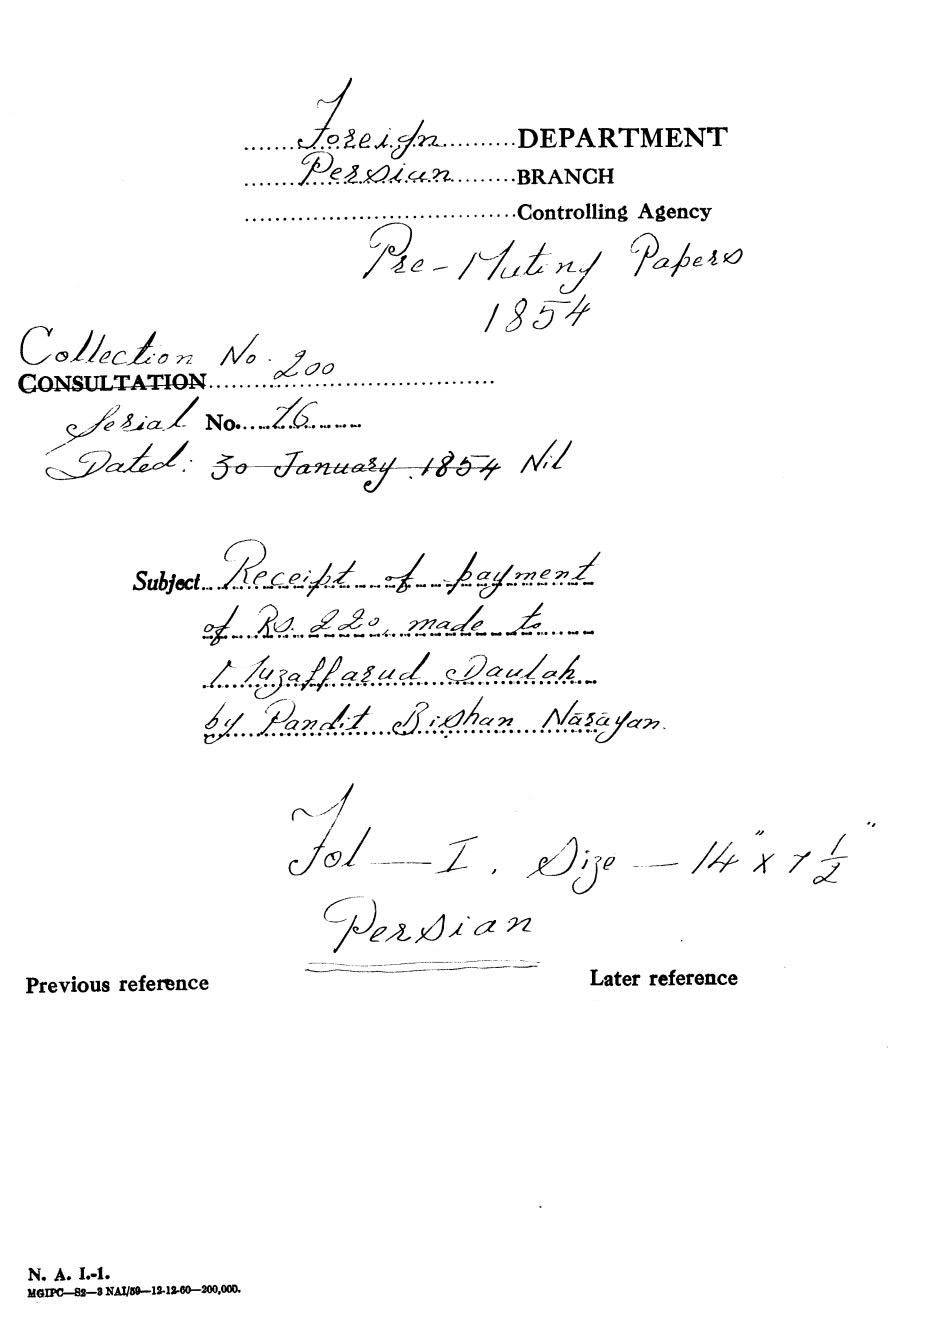 Foreign DEPARTMENT
Persian BRANCH
Controlling Agency
Pre-Mutiny Papers
1854
Collection No. 200
CONSULTATION
Serial No. 76
Dated: 30 January 1854 Nil
Subject Receipt of payment
of Rs. 220, made to
Muzaffarud Daulah
by Pandit Bishan Narayan.
Fol — I. Size — 14" x 7 1/2"
Persian
Previous reference Later reference
N. A. I.-1.
MGIPC—S2—3 NAI/59—12-12-60—200,000.